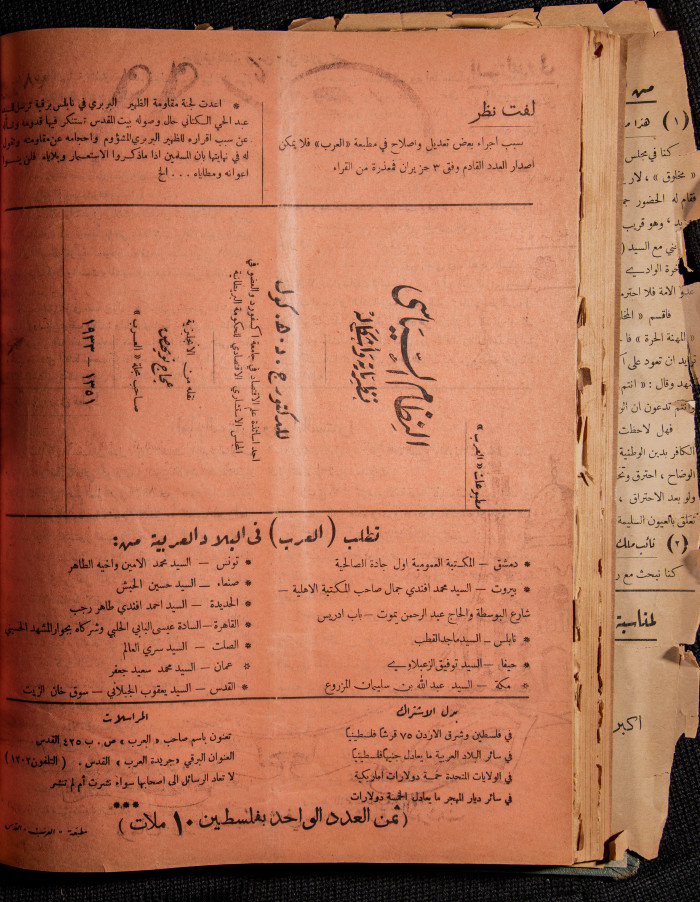 لفت نظر
بسبب اجراء بعض تعديل واصلاح في مطبعة «العرب» فلا يمكن
أصدار العدد القادم وفق ٣ حزيران فمعذرة من القراء
* اعدت لجنة مقاومة الظهير البربري في نابلس برقيا
عبد الحي الكتاني حال وصوله بيت المقدس تستنكر فيها قدومه
عن سبب اقراره للظهير البربري المشؤوم واحجامه عن مقاومته
له في نهايتها بان المسلمين اذا ماذكروا الاستعمار وبلاياه فلن
اعوانه ومطاياه . . . الخ
مطبوعات «العرب»
النظام السياسي
نظرياته واشكاله
للدكتور ج . د . هـ . كول
احد اساتذة علم الاقتصاد في جامعة اكسفورد والعضو في
المجلس الاستشاري الاقتصادي للحكومة البريطانية
نقله من الانجليزية
عجاج نويهض
صاحب مجلة «العرب»
١٣٥١ — ١٩٣٣
تطلب (العرب) في البلاد العربية من:
* دمشق — المكتبة العمومية اول جادة الصالحية
* بيروت — السيد محمد افندي جمال صاحب المكتبة الاهلية —
شارع البوسطة والحاج عبد الرحمن بموت — باب ادريس
* نابلس — السيد ماجد القطب
* حيفا — السيد توفيق الزعبلاوي
* مكة — السيد عبد الله بن سليمان المزروع
* تونس — السيد محمد الامين واخيه الطاهر
* صنعاء — السيد حسين الحبش
* الحديدة — السيد احمد افندي طاهر رجب
* القاهرة — السادة عيسى البابي الحلبي وشركاه بجوار المشهد الحسيني
* الصلت — السيد سري العالم
* عمان — السيد محمد سعيد جعفر
* القدس — السيد يعقوب الجيلاني — سوق خان الزيت
بدل الاشتراك
في فلسطين وشرق الاردن ٧٥ قرشاً فلسطينياً
في سائر البلاد العربية ما يعادل جنيهاً فلسطينياً
في الولايات المتحدة خمسة دولارات اماريكية
في سائر ديار المهجر ما يعادل الخمسة دولارات
المراسلات
تعنون باسم صاحب «العرب» ص . ب ٤٢٥ القدس
العنوان البرقي «جريدة العرب» القدس . (التلفون ١٣٠٢)
لا تعاد الرسائل الى اصحابها سواء نشرت أم لم تنشر
(ثمن العدد الواحد بفلسطين ١٠ ملات)
مطبعة . العرب . القدس
من
(١) هذا
كنا في مجلس
« مخلوق » ،
فقام له الحضور
وهو قريب
مع السيد
فلا احترم
فاقسم «
« المهنة الحرة »
ان تعود على
وقال : « انتم
تدعون ان
فهل لاحظت
الكافر بدين الوطنية
الوضاح ، احترق
ولو بعد الاحتراق ،
تعلق بالعيون السليمة
(٢) نائب ملك
كنا نبحث مع
لمناسبة
اكبر